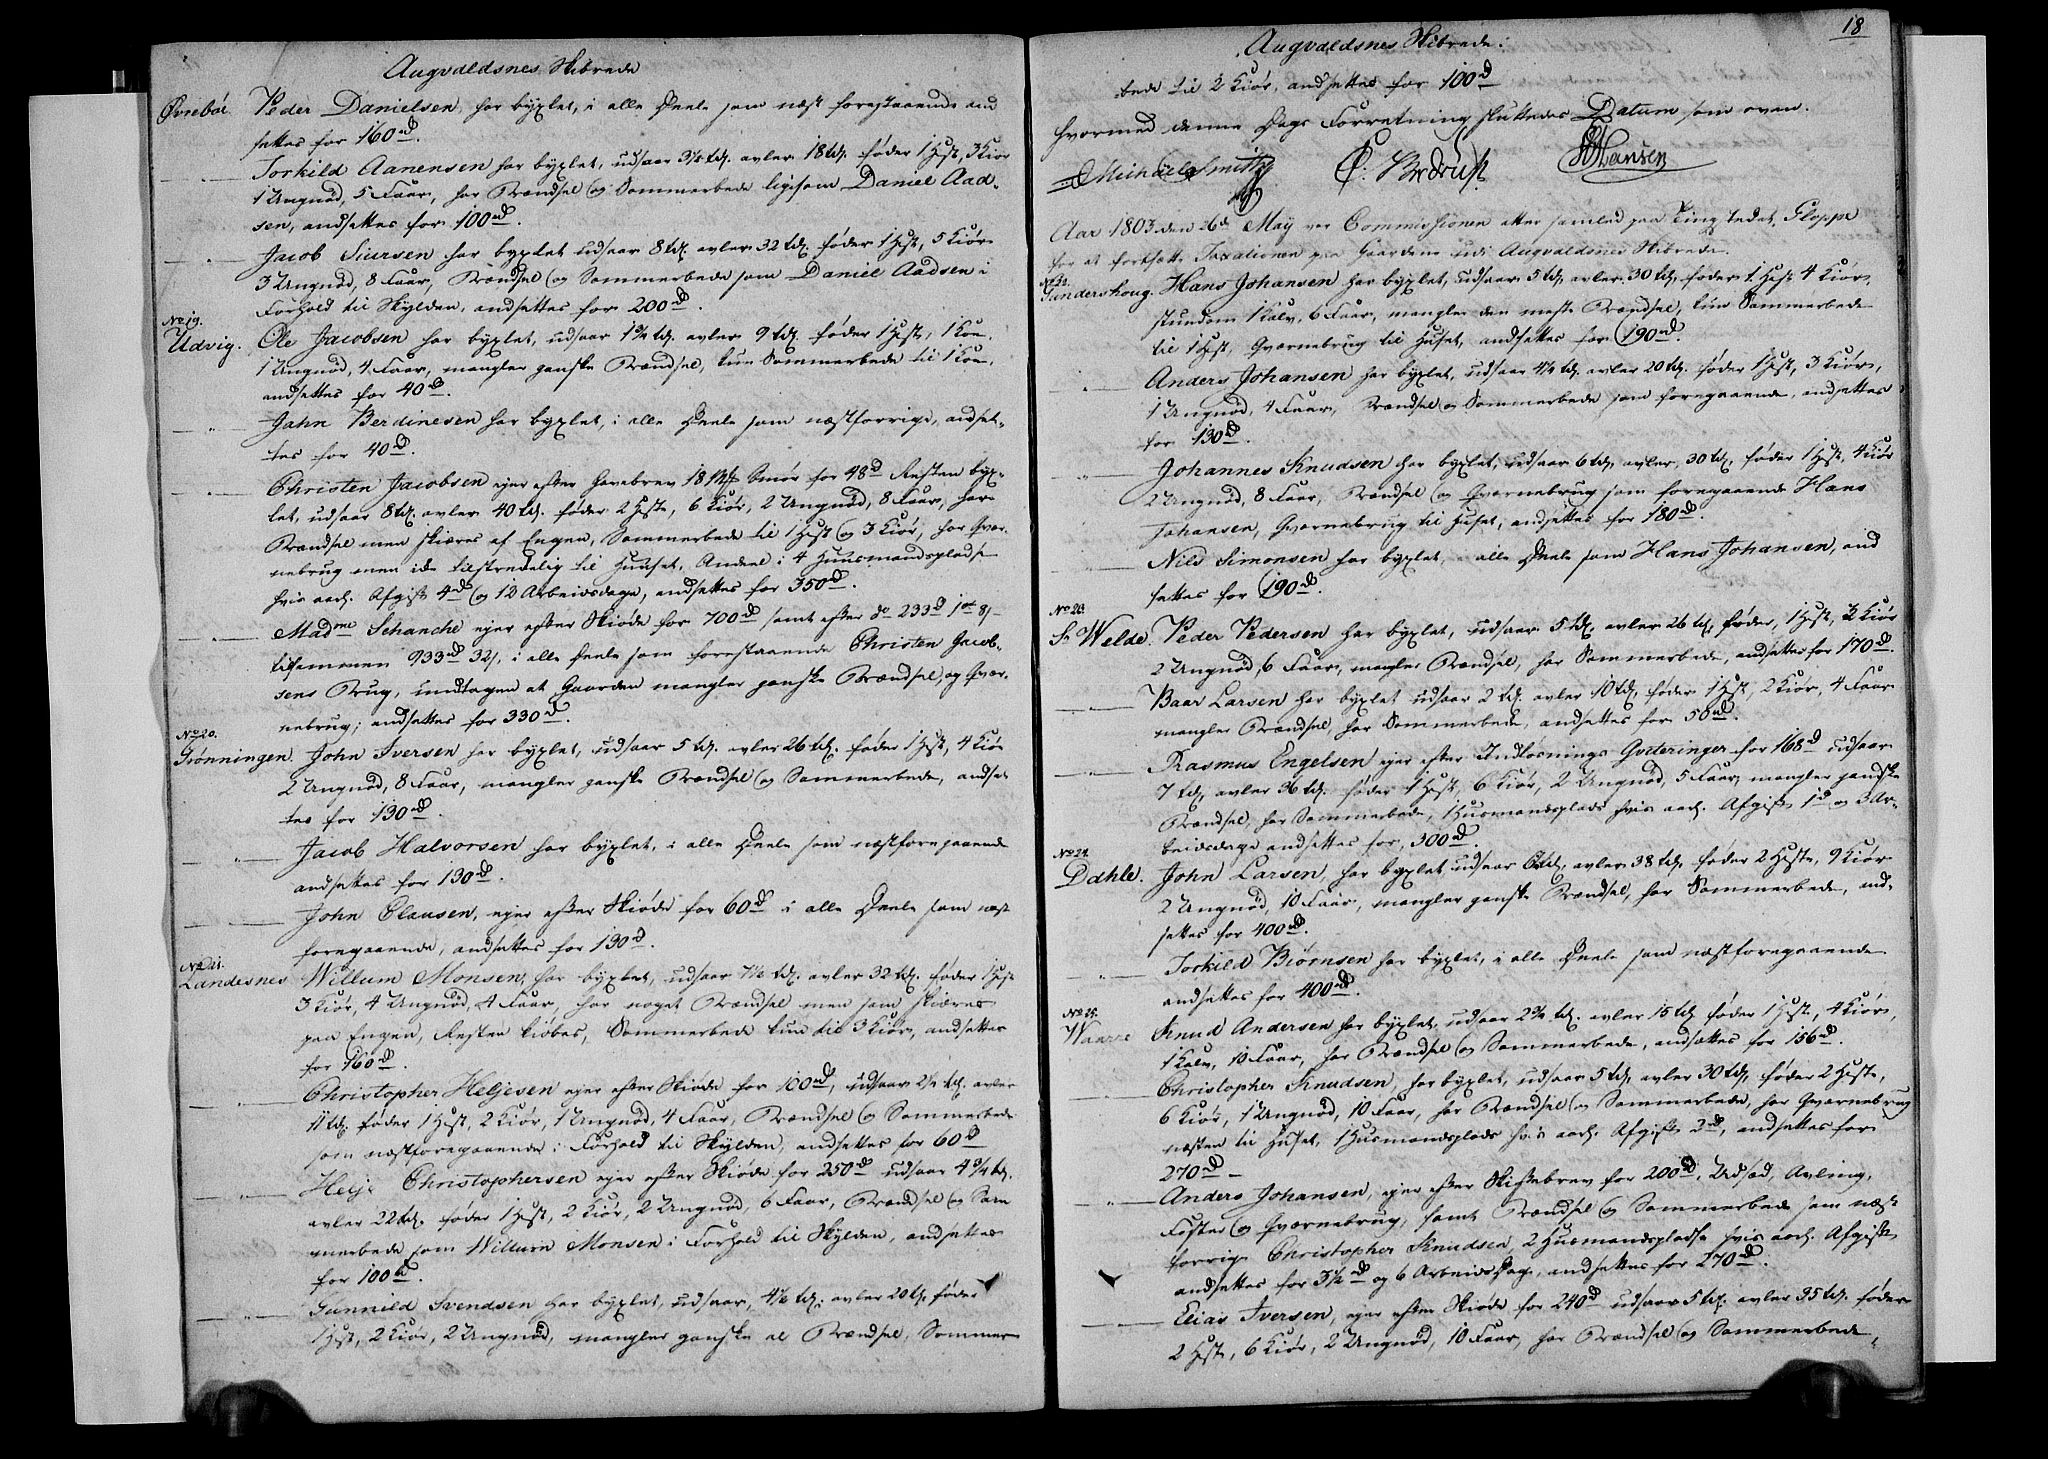 Augvaldsnes Skibrede
Øvrebøe. Peder Danielsen, har byxlet, i alle Deele som næst forestaaende and
settes for 160rd.
Torkild Aanensen har byxlet, udsaar 3½ td. avler 18 td. føder 1 Hest, 3 Kiør
1 Ungnød, 5 Faar, har Brændsel og Sommerbede ligesom Daniel Aad-
sen, andsettes for 100rd.
Jacob Siursen har byxlet udsaar 8 td. avler 32 td. føder 1 Hest, 5 Kiør
3 Ungnød, 8 Faar, Brændsel og Sommerbede som Daniel Aadsen i
Forhold til Skylden, andsettes for 200rd.
No 19.
Udvig. Ole Jacobsen har byxlet, udsaar 1¾ td. avler 9 td. føder 1 Hest, 1 Koe.
1 Ungnød, 4 Faar, mangler ganske Brændsel, kun Sommerbede til 1 Koe,
andsettes for 40rd.
Jahn Berdinesen har byxlet, i alle Deele som næstforrige, andset-
tes for 40rd.
Christen Jacobsen ejer efter Gavebrev 18 Mk Smør for 48rd Resten byx-
let, udsaar 8 td. avler 40 td. føder 2 Heste, 6 Kiør, 2 Ungnød, 8 Faar, har
Brændsel men skiæres af Engen, Sommerbede til 1 Hest og 3 Kiør, har Qvær-
nebrug men ikke tilstrædelig til Huuset, Andeel i 4 Huusmandspladse
hvis aarl. Afgift 4rd og 12 Arbeidsdage, andsettes for 350rd.
Madme Schanche ejer efter Skiøde for 700rd samt efter do 233rd 1ort 8s
tilsammen 933rd 32s, i alle Deele som forestaaende Christen Jacob-
sens Brug, undtagen at Gaarden mangler ganske Brændsel, og Qvær-
nebrug; andsettes for 330rd.
No 20.
Grønningen. John Iversen har byxlet, udsaar 5 td. avler 26 td. føder 1 Hest, 4 Kiør
2 Ungnød, 8 Faar, mangler ganske Brændsel og Sommerbede, andset-
tes for 130rd.
Jacob Halvorsen har byxlet, i alle Deele som næstforegaaende
andsettes for 130rd.
John Clausen, ejer efter Skiøde for 60rd i alle Deele som næst
foregaaende, andsettes for 130rd.
No 21.
Landesnes Willum Monsen, har byxlet, udsaar 7½ td. avler 32 td. føder 1 Hest
3 Kiør, 4 Ungnød, 4 Faar, har noget Brændsel men som skiæres
paa Engen, Resten kiøbes, Sommerbede kun til 3 Kiør, andsettes
for 160rd.
Christopher Heljesen ejer efter Skiøde for 100rd, udsaar 2½ td. avler
11 td. føder 1 Hest, 2 Kiør, 1 Ungnød, 4 Faar, Brændsel og Sommerbede
som næstforegaaende i Forhold til Skylden, andsettes for 60rd
Helje Christophersen ejer efter Skiøde for 250rd udsaar 4¾ td.
avler 22 td. føder 1 Hest, 2 Kiør, 2 Ungnød, 6 Faar, Brændsel og Som
merbede som Willum Monsen i Forhold til Skylden, andsettes
for 100rd.
Gunnild Svendsen har byxlet, udsaar, 4½ td. avler 20 td. føder
1 Hest, 2 Kiør, 2 Ungnød, mangler ganske al Brændsel, Sommer
18
Augvaldsnes Skibrede.
bede til 2 Kiør, andsettes for 100rd
hvormed denne Dags Forretning sluttedes Datum som oven.
Michäel Smith
Aar 1803 den 26de May var Commissionen atter samled paa Tingstedet, Gloppe
for at fortsætte Taxationen paa Gaardene udi Augvaldsnes Skibrede.
No 22.
Gundershoug. Hans Johansen har byxlet, udsaar 5 td. avler 30 td. føder 1 Hest 4 Kiør,
stundom 1 Kalv, 6 Faar, mangler den meste Brændsel, kun Sommerbede
til 1 Hest, Qværnebrug til Huset, andsettes for 190rd.
Anders Johansen har byxlet, udsaar 4¼ td. avler 20 td. føder 1 Hest, 3 Kiør,
1 Ungnød, 4 Faar, Brændsel og Sommerbede som foregaaende, andsettes
for 130rd.
Johannes Knudsen har byxlet, udsaar 6 td. avler 30 td. føder 1 Hest, 4 Kiør
2 Ungnød, 8 Faar, Brændsel og Qværnebrug som foregaaende Hans
Johansen, Qværnebrug til Huset, andsettes for 180rd.
Nils Simonsen har byxlet, alle Deele som Hans Johansen, and
settes for 190rd.
No 23.
Sr Welde. Peder Pedersen har byxlet, udsaar 5 td. avler 26 td. føder, 1 Hest, 3 Kiør
2 Ungnød, 6 Faar, mangler Brændsel, har Sommerbede, andsettes for 170rd.
Baar Larsen har byxlet udsaar 2 td. avler 10 td, føder 1 Hest, 2 Kiør, 4 Faar
mangler Brændsel, har Sommerbede, andsettes for 50rd.
Rasmus Engelsen ejer efter Indløsnings Qvitteringer for 168rd udsaar
7 td, avler 36 td. føder 1 Hest, 6 Kiør, 2 Ungnød, 5 Faar, mangler ganske
Brændsel, har Sommerbede, 1 Huusmandsplads hvis aarl. Afgift 1rd og 3 Ar-
beidsdage andsettes for, 300rd.
No 24.
Dahle. John Larsen, har byxlet udsaar 6 td. avler 38 td. føder 2 Heste, 9 Kiør
2 Ungnød, 10 Faar, mangler ganske Brændsel, har Sommerbede, and-
settes for 400rd.
Torkild Biørnsen har byxlet, i alle Deele som næstforegaaende
andsettes for 400rd.
No 25.
Waarre Knud Andersen har byxlet, udsaar 2¾ td. avler 15 td føder 1 Hest, 4 Kiør,
1 Kalv, 10 Faar, har Brændsel og Sommerbede, andsættes for 156rd.
Christopher Knudsen, har byxlet, udsaar 5 td, avler 30 td, føder 2 Heste,
6 Kiør, 1 Ungnød, 10 Faar, har Brændsel og Sommerbede, har Qværnebrug
næsten til Huset, 1 Husmandsplads hvis aarl. Afgift 2rd, andsettes for
270rd
Anders Johansen, ejer efter Skiftebrev for 200rd, Udsæd, Avling,
Foster og Qværnebrug, samt Brændsel og Sommerbede som næst
forrige Christopher Knudsen, 2 Husmandspladse hvis aarl. Afgift
andsettes for 3½rd og 6 Arbeidsdage, andsettes for 270rd.
Elias Iversen, ejer efter Skiøde for 240rd udsaar 5 td. avler 35 td. føder
2 Heste, 6 Kiør, 2 Ungnød, 10 Faar, har Brændsel og Sommerbede